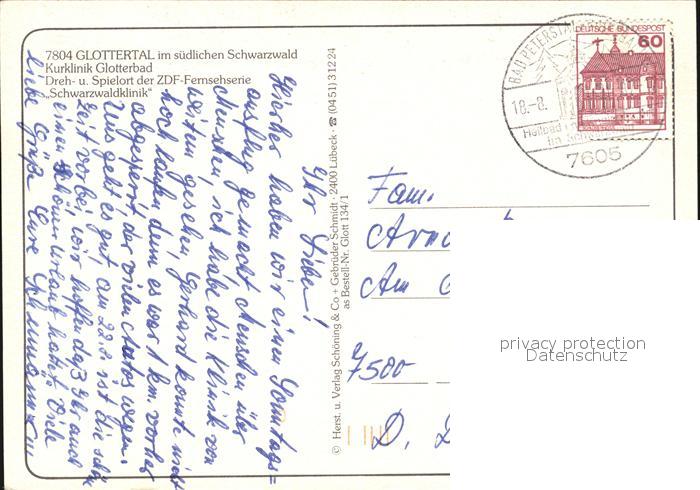 7804 GLOTTERTAL im südlichen Schwarzwald
Kurklinik Glotterbad
Dreh- u. Spielort der ZDF-Fernsehserie
„Schwarzwaldklinik"
Ihr Lieben!
Hierher haben wir einen Sonntags=
ausflug gemacht Menschen über
Menschen, ich habe die Klinik von
weitem gesehen, Gerhard konnte nicht
hoch laufen, denn es war 1 km. vorher
abgesperrt, der vielen Autos wegen.
Uns geht es gut, am 22.8. ist die schöne
Zeit vorbei, wir hoffen daß Ihr auch
einen schönen Urlaub hattet. Viele
liebe Grüße Eure
© Herst. u. Verlag Schöning & Co + Gebrüder Schmidt · 2400 Lübeck · ☎ (0451) 31224
as Bestell-Nr. Glott 134/1
BAD PETERSTAL
18.-8.
Heilbad
im
7605
DEUTSCHE BUNDESPOST
60
Fam.
Am
7500
D.
privacy protection
Datenschutz